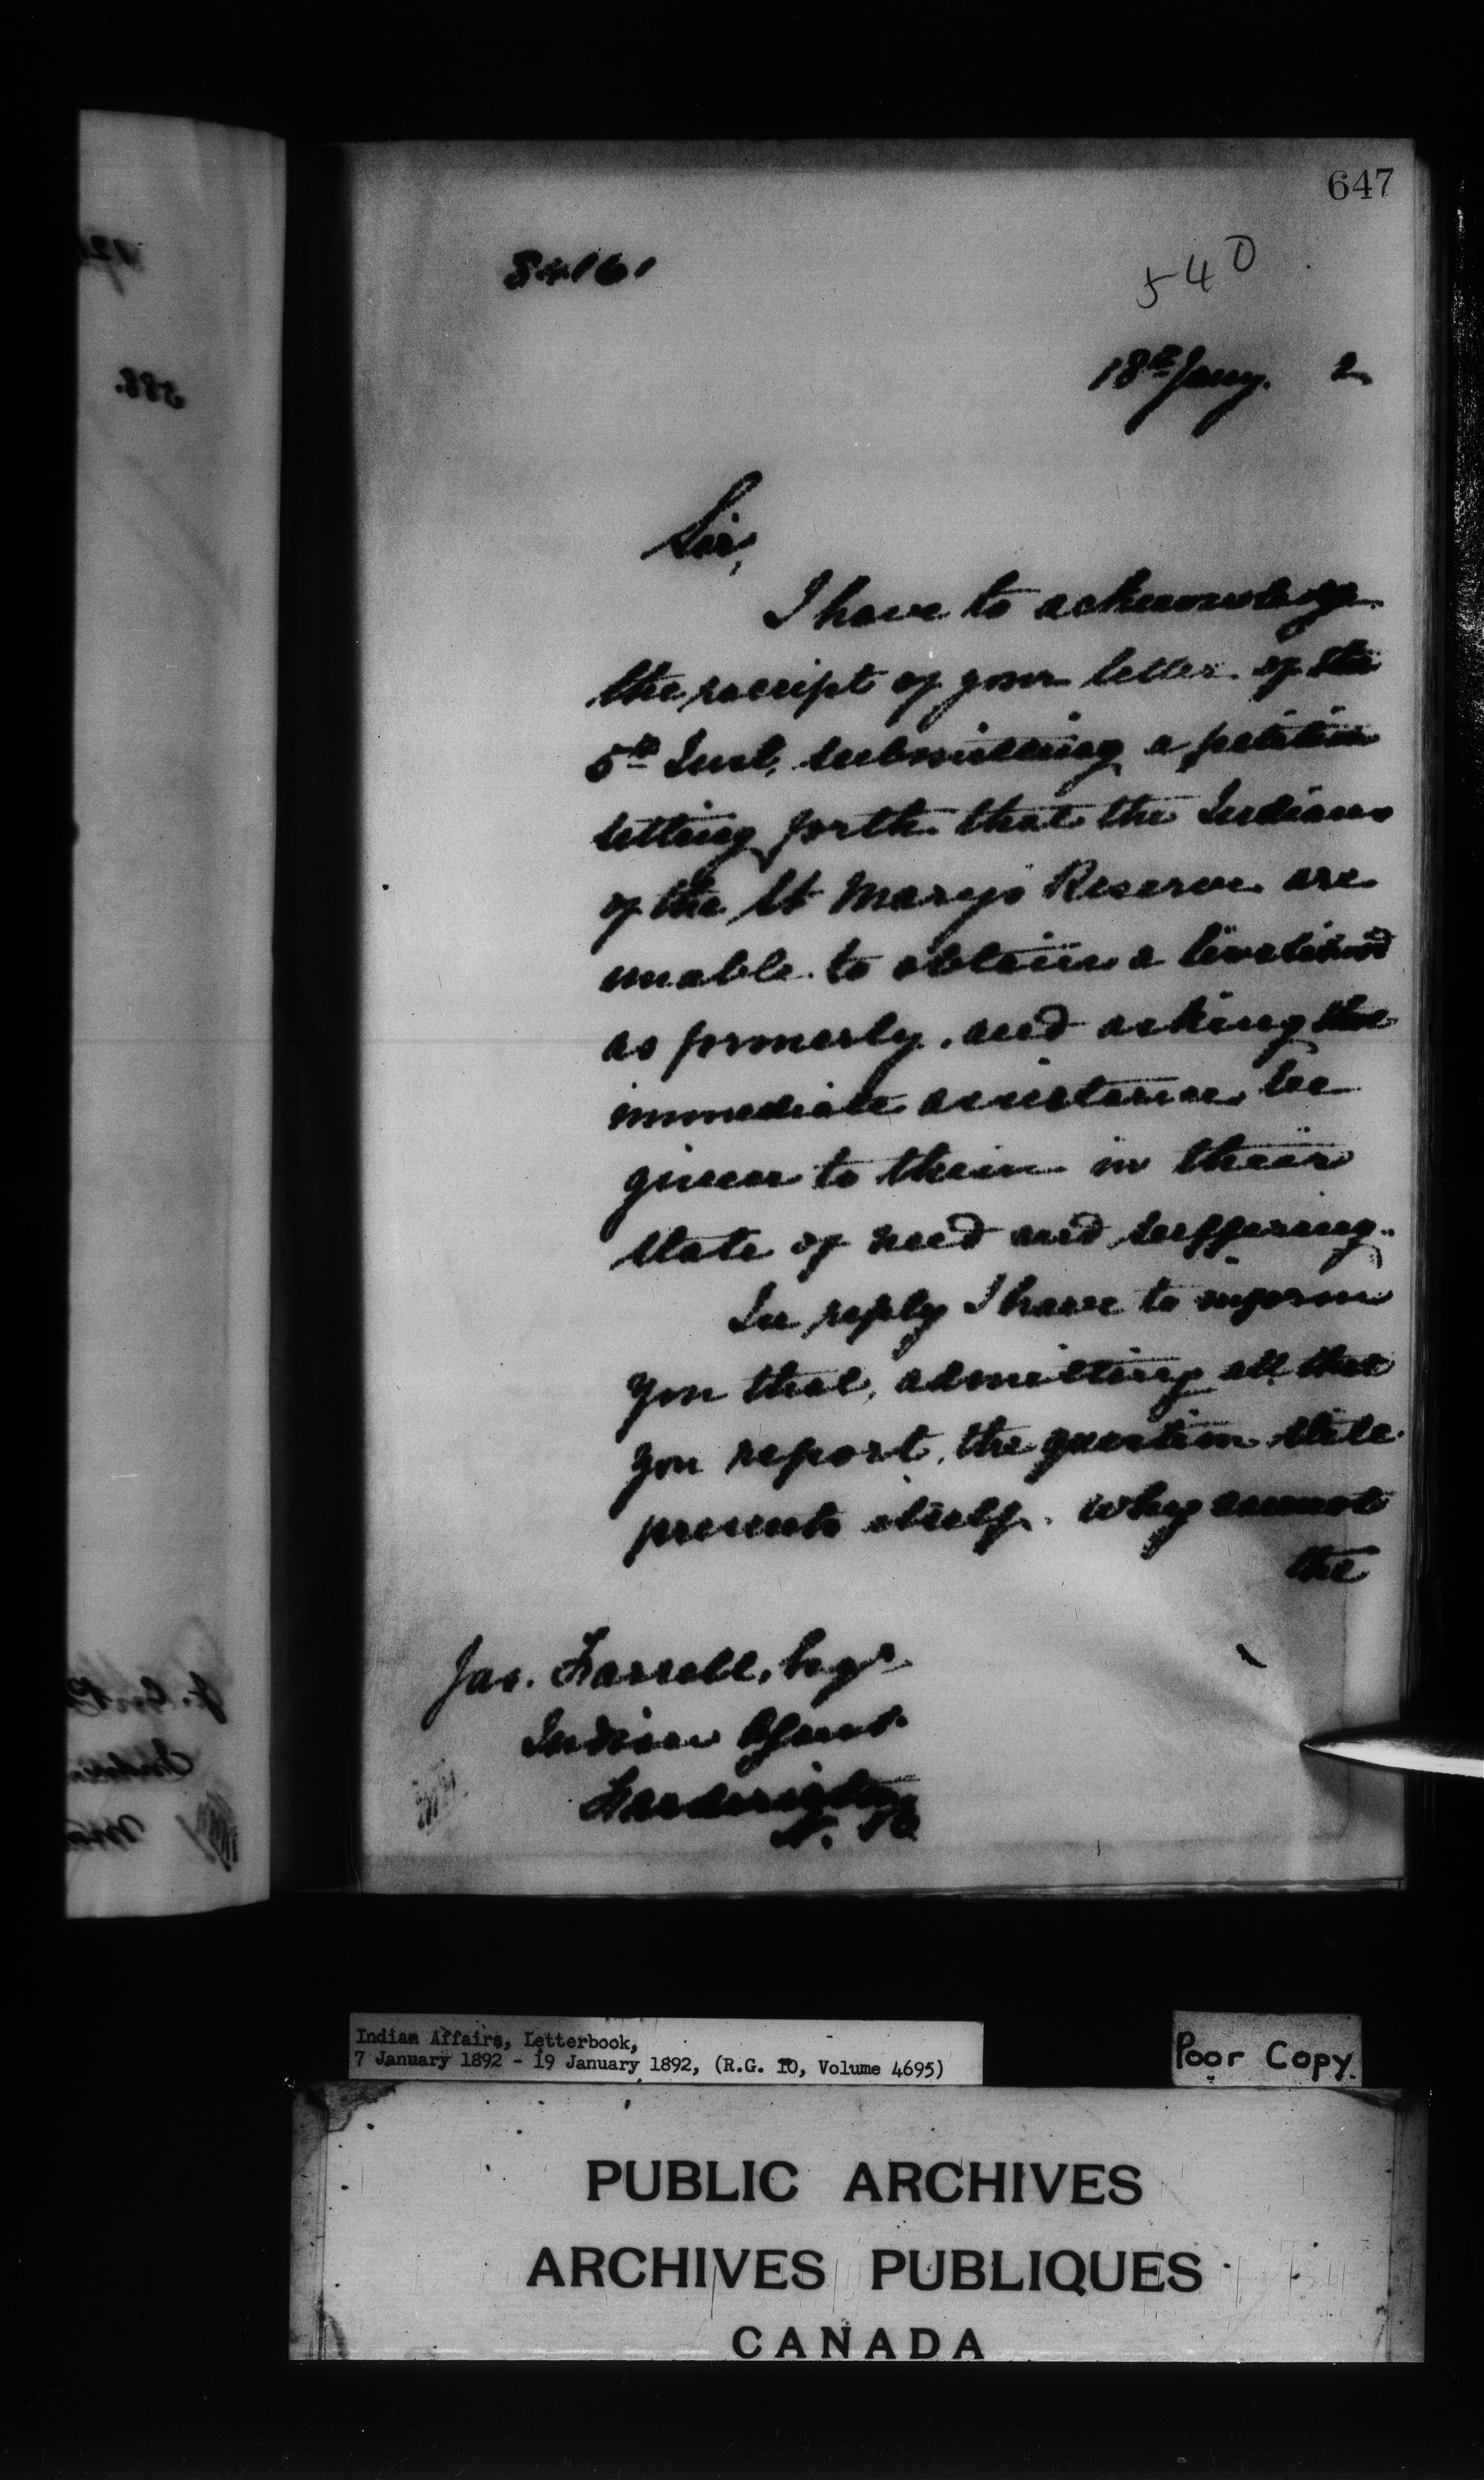 647
540
18th Jany. 2
Sir,
I have to acknowledge
the receipt of your letter of the
5th Inst. submitting a petition
setting forth that the Indians
of the St Mary's Reserve are
unable to obtain a livelihood
as formerly, and asking that
immediate assistance be
given to them in their
state of need and suffering.
In reply I have to inform
you that, admitting all that
you report, the question still
presents itself, why cannot
the
Jas. Farrell, Esqr.
Indian Agent
Fredericton
N. B.
Indian Affairs, Letterbook,
7 January 1892 - 19 January 1892, (R.G. 10, Volume 4695)
Poor Copy.
PUBLIC ARCHIVES
ARCHIVES PUBLIQUES
CANADA